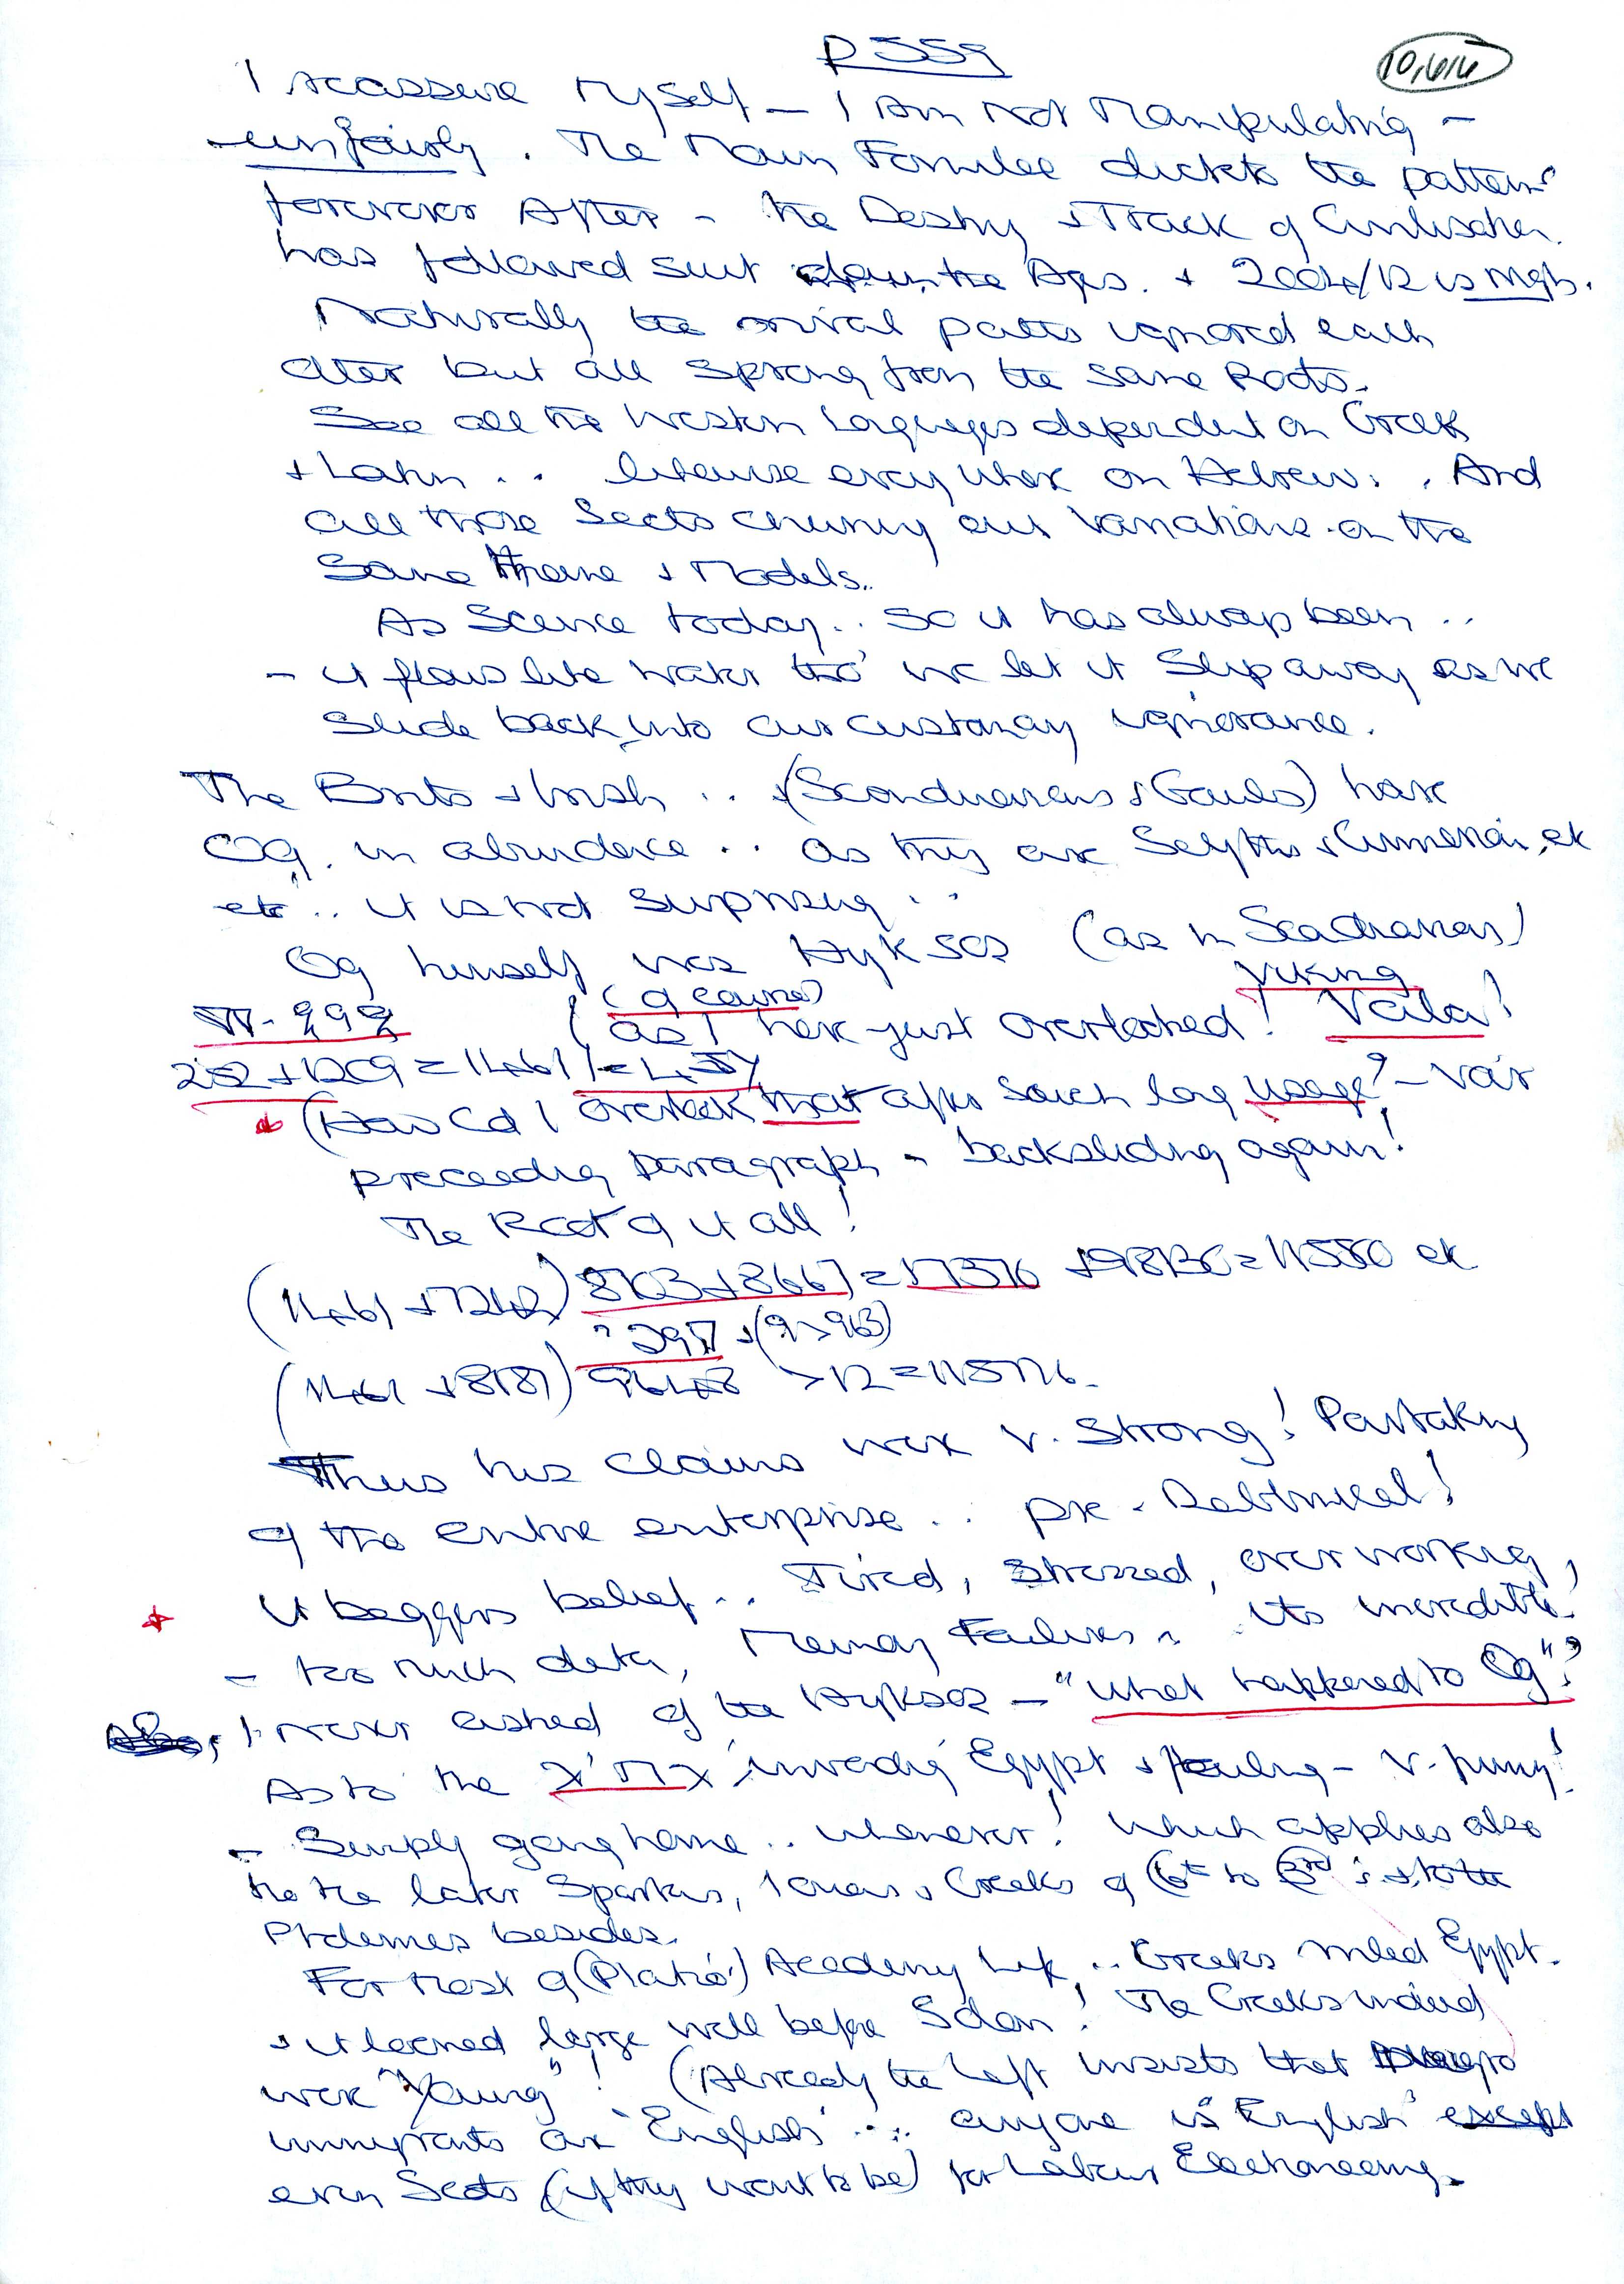 p 559
I reassure Myself — I Am Not Manipulating –
– unfairly. The Main Formulae the pattern
forever After – the Destiny + Track of Civilisation
has followed suit down the Ages. + 2004/12 is
Naturally the rival paths ignored each
other but all sprang from the same Roots.
See all the Western Languages dependent on Greek
+ Latin .. likewise everywhere on Hebrew. . And
all those Sects churning out Variations on the
Same Theme + Models..
As Science today.. So it has always been ..
– it flows like water tho' we let it Slip away as we
slide back into our customary ignorance.
The Brits + Irish .. +(Scandinavians + Gauls) have
Og. in abundance .. as they are Scyths + Cimmerian, etc
etc .. it is not surprising ..
Og himself was Hyksos (as in Scandinavians)
Viking
(of course)
(as I have just overlooked! Voila!
252 + 1209 = 1461
(How Cd I overlook that after such long usage? –
preceeding paragraph – backsliding again!
The Root of it all!
(1461 + 7242) 8703 + 8667 = 17370 = 11550 etc
(1461 + 8187) 9648 > 12 = 115776.
Thus his claims were v. Strong! Partaking
of the entire enterprise .. pre -
It beggers belief .. Tired, Stressed, over working,
– too much data, Memory Failures .. its incredible.
I never asked of the Hyksos – "What happened to Og"?
As to the invading Egypt + – v. funny!
– Simply going home .. whenever! Which applies also
to the later Spartans, Ionians + Greeks of 6th to 3rd + to the
Ptolemies besides.
For most of (Plato's) Academy .. Greeks ruled Egypt.
+ it loomed large well before Solon! The Greeks indeed
were "Young"! (Already the Left insists that
immigrants are 'English' ... anyone is 'English' except
even Scots (if they want to be) for Labour Electioneering.